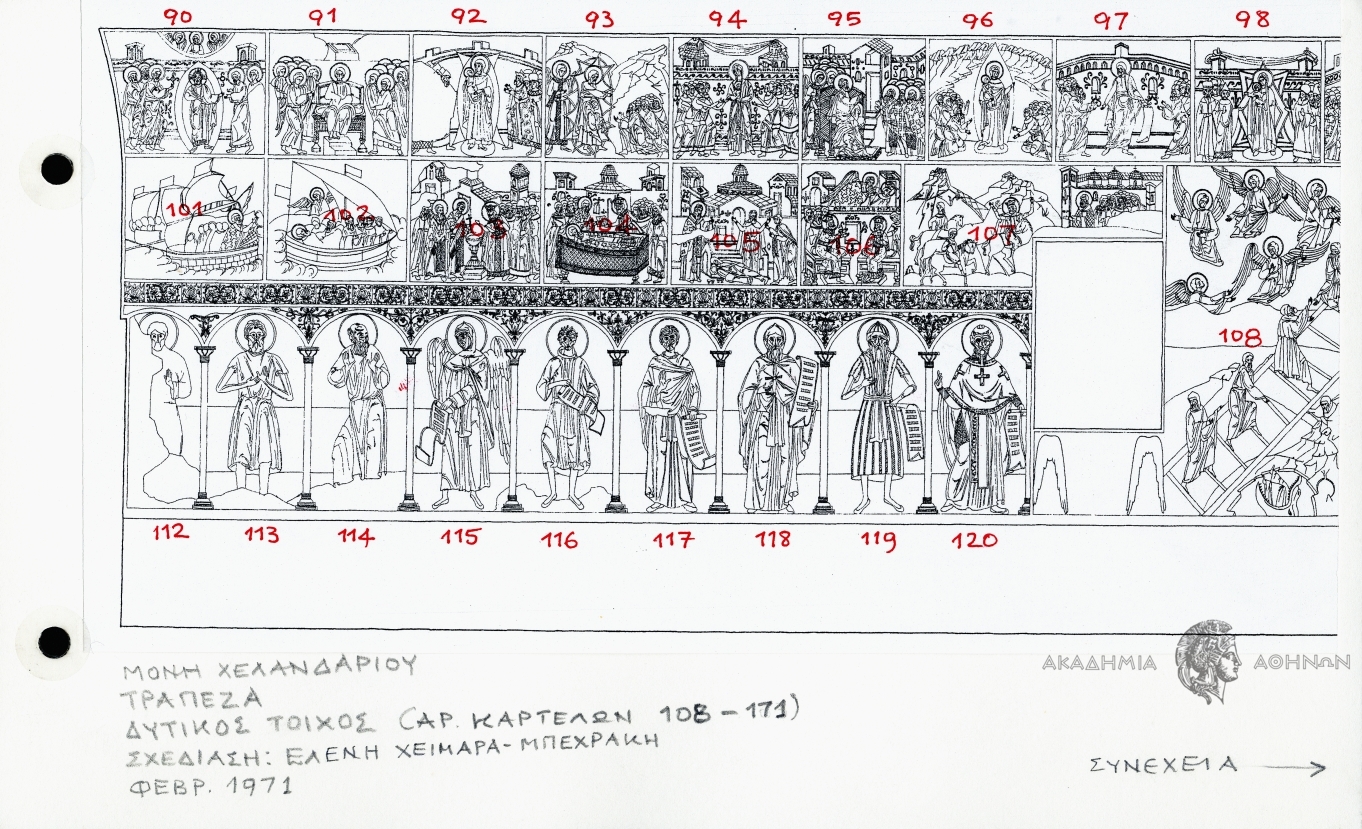 90 91 92 93 94 95 96 97 98
101 102 103 104 105 106 107
108
112 113 114 115 116 117 118 119 120
ΑΚΑΔΗΜΙΑ ΑΘΗΝΩΝ
ΜΟΝΗ ΧΕΛΑΝΔΑΡΙΟΥ
ΤΡΑΠΕΖΑ
ΔΥΤΙΚΟΣ ΤΟΙΧΟΣ (ΑΡ. ΚΑΡΤΕΛΩΝ 108 - 171)
ΣΧΕΔΙΑΣΗ: ΕΛΕΝΗ ΧΕΙΜΑΡΑ-ΜΠΕΧΡΑΚΗ
ΦΕΒΡ. 1971
ΣΥΝΕΧΕΙΑ